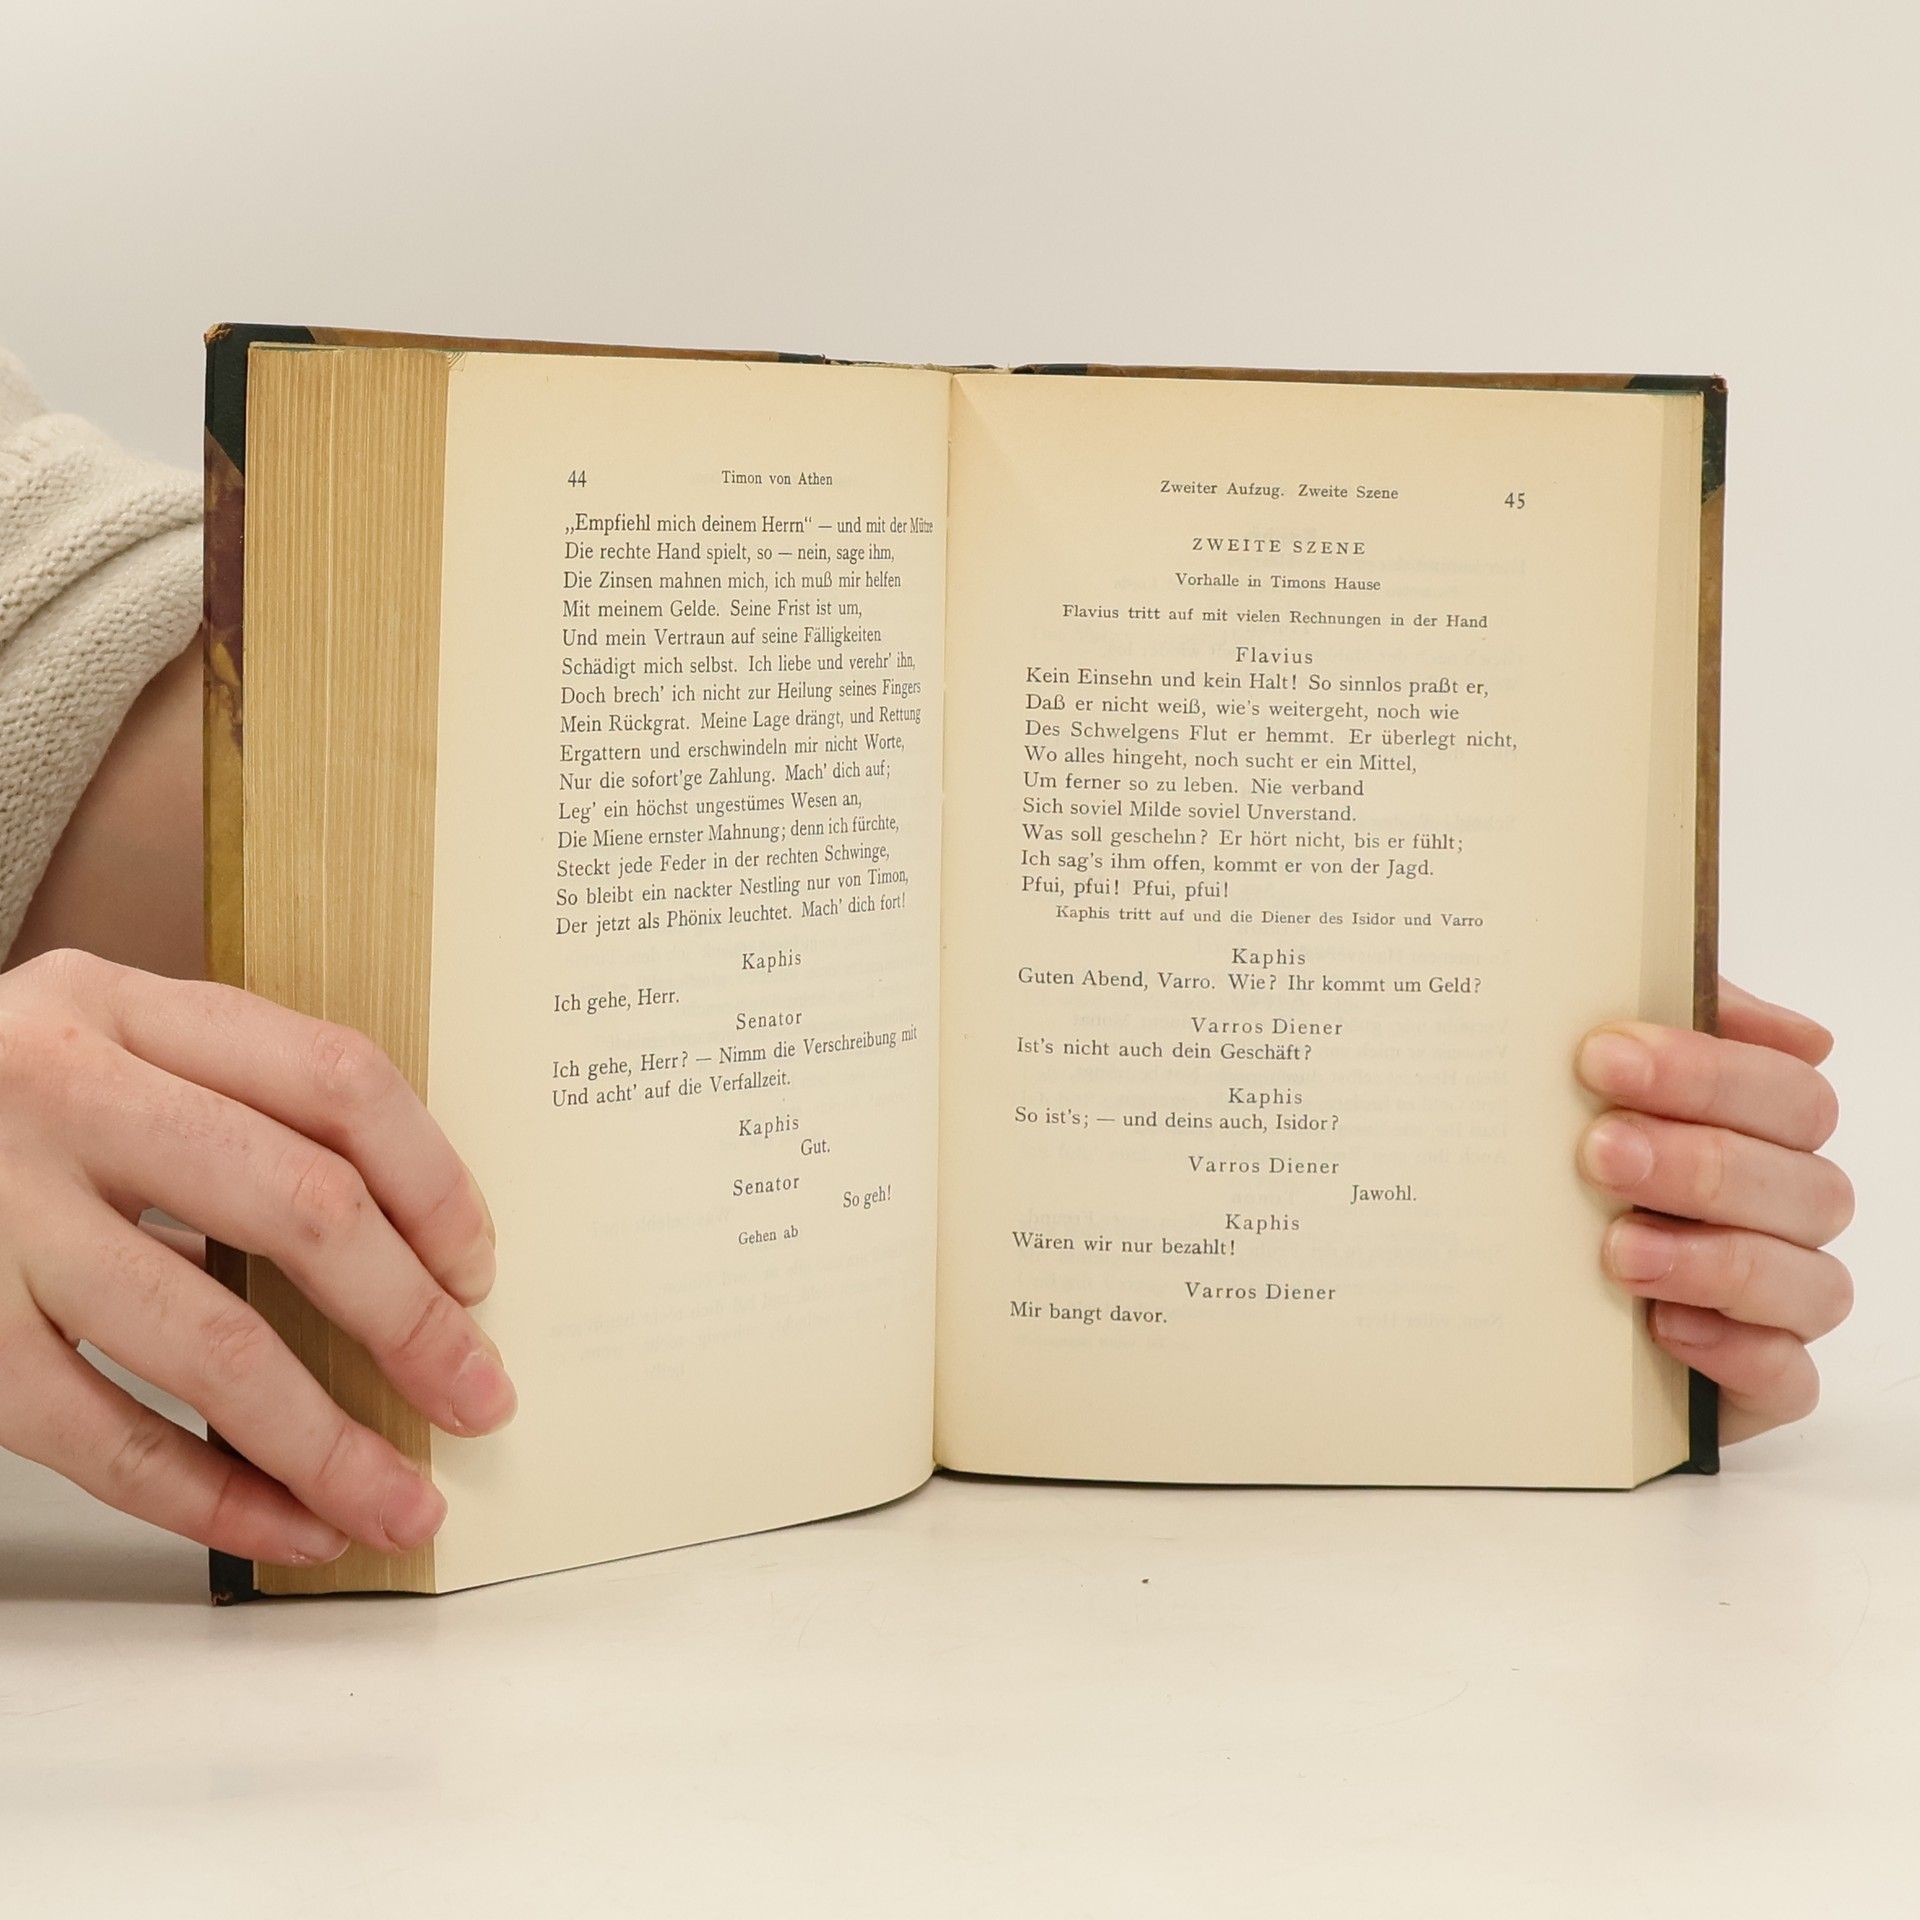 44
Timon von Athen
„Empfiehl mich deinem Herrn“ — und mit der Mütze
Die rechte Hand spielt, so — nein, sage ihm,
Die Zinsen mahnen mich, ich muß mir helfen
Mit meinem Gelde. Seine Frist ist um,
Und mein Vertraun auf seine Fälligkeiten
Schädigt mich selbst. Ich liebe und verehr’ ihn,
Doch brech’ ich nicht zur Heilung seines Fingers
Mein Rückgrat. Meine Lage drängt, und Rettung
Ergattern und erschwindeln mir nicht Worte,
Nur die sofort’ge Zahlung. Mach’ dich auf;
Leg’ ein höchst ungestümes Wesen an,
Die Miene ernster Mahnung; denn ich fürchte,
Steckt jede Feder in der rechten Schwinge,
So bleibt ein nackter Nestling nur von Timon,
Der jetzt als Phönix leuchtet. Mach’ dich fort!
Kaphis
Ich gehe, Herr.
Senator
Ich gehe, Herr? — Nimm die Verschreibung mit
Und acht’ auf die Verfallzeit.
Kaphis
Gut.
Senator
So geh!
Gehen ab
Zweiter Aufzug. Zweite Szene
45
ZWEITE SZENE
Vorhalle in Timons Hause
Flavius tritt auf mit vielen Rechnungen in der Hand
Flavius
Kein Einsehn und kein Halt! So sinnlos praßt er,
Daß er nicht weiß, wie’s weitergeht, noch wie
Des Schwelgens Flut er hemmt. Er überlegt nicht,
Wo alles hingeht, noch sucht er ein Mittel,
Um ferner so zu leben. Nie verband
Sich soviel Milde soviel Unverstand.
Was soll geschehn? Er hört nicht, bis er fühlt;
Ich sag’s ihm offen, kommt er von der Jagd.
Pfui, pfui! Pfui, pfui!
Kaphis tritt auf und die Diener des Isidor und Varro
Kaphis
Guten Abend, Varro. Wie? Ihr kommt um Geld?
Varros Diener
Ist’s nicht auch dein Geschäft?
Kaphis
So ist’s; — und deins auch, Isidor?
Varros Diener
Jawohl.
Kaphis
Wären wir nur bezahlt!
Varros Diener
Mir bangt davor.